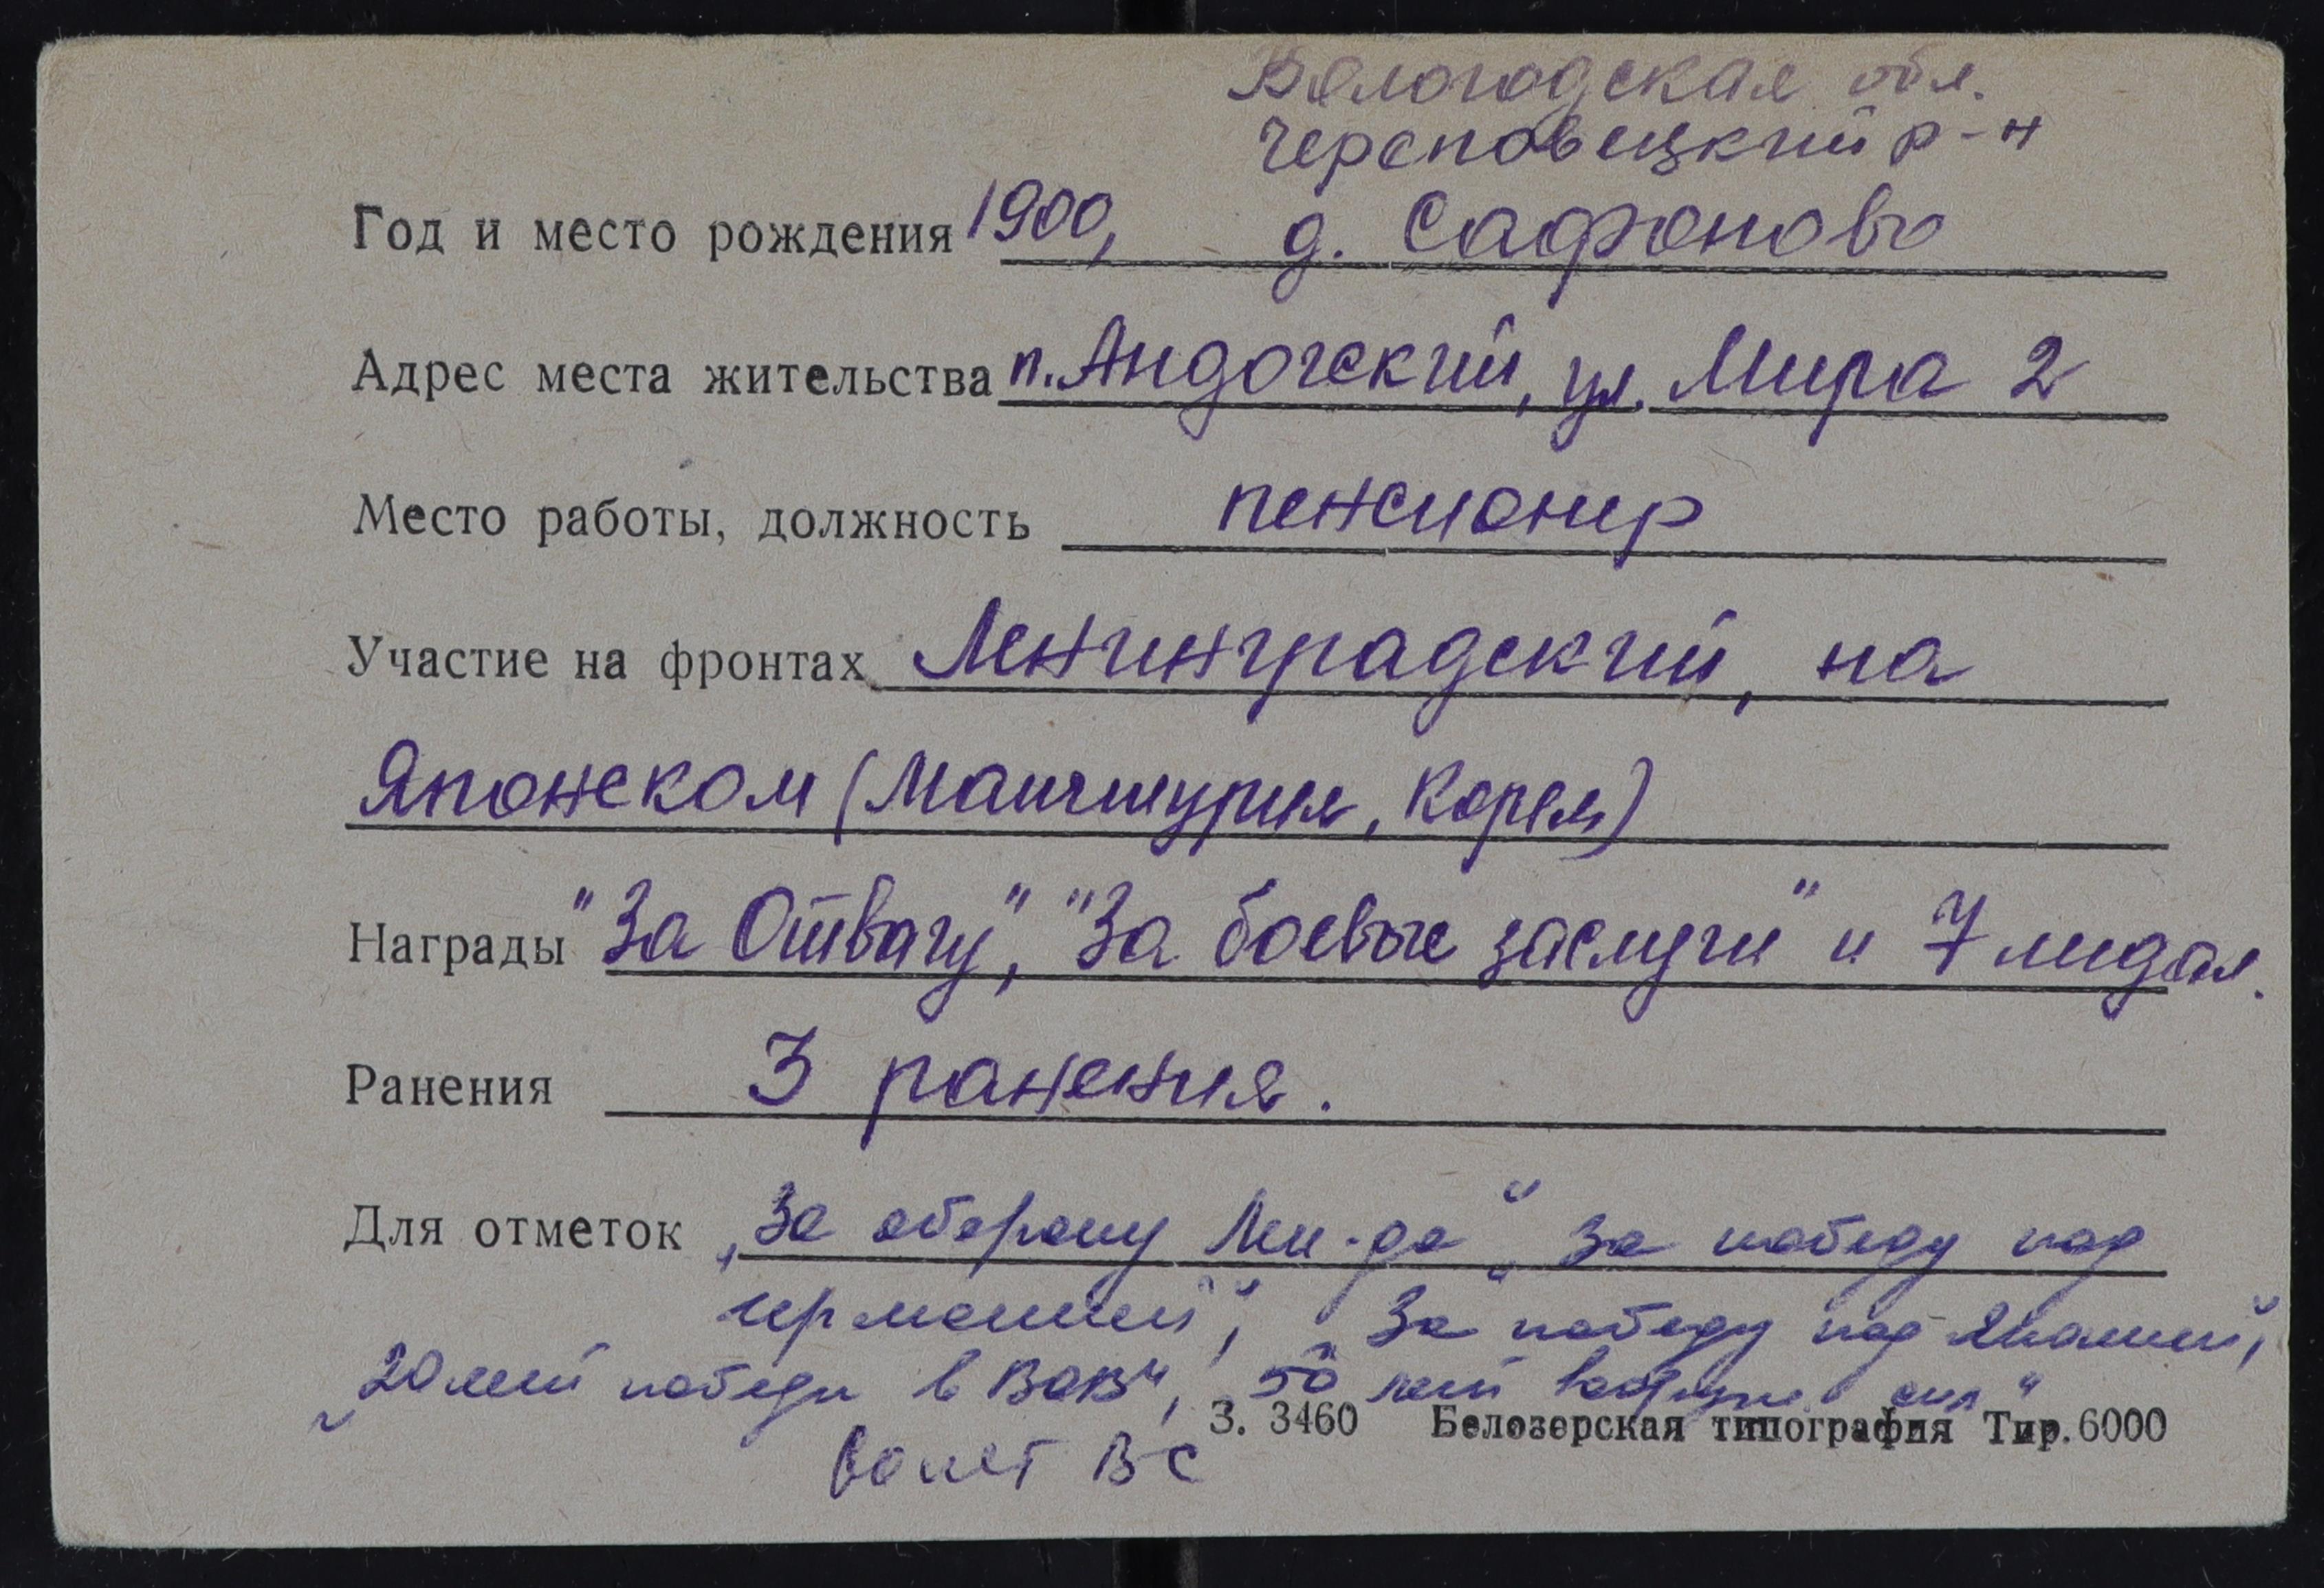 Вологодская обл.
Череповецкий р-н
Год и место рождения 1900, д. Сафоново
Адрес места жительства п. Андогский, ул. Мира 2
Место работы, должность пенсионер
Участие на фронтах Ленинградский, на
Японском (Манчжурия, Корея)
Награды "За Отвагу", "За боевые заслуги" и 7 медал.
Ранения 3 ранения.
Для отметок „За оборону Лен-да" „За победу над
германией", „За победу над Японией",
„20 лет победы в ВОВ", „50 лет вооруж. сил"
З. 3460 Белозерская типография Тир. 6000
60 лет ВС